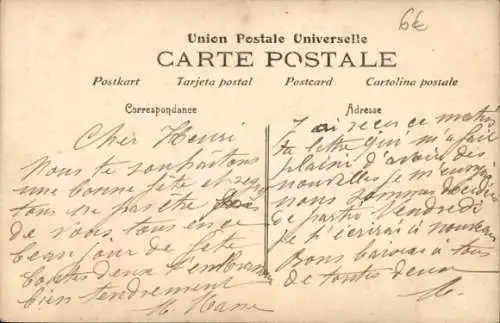 6€
Union Postale Universelle
CARTE POSTALE
Postkart Tarjeta postal Postcard Cartolina postale
Correspondance
Cher Henri
Nous te souhaitons
une bonne fête et
tous ne pas etre
de vous tous en ce
beau jour de fête
toutes deux t'embrassons
bien tendrement
M.
Adresse
J'ai reçu ce matin
ta lettre qui m'a fait
plaisir d'avoir des
nouvelles je
nous sommes
de partir Vendredi
Je t'écrirai à nouveau
Bons baisers à tous
de toutes deux
M.